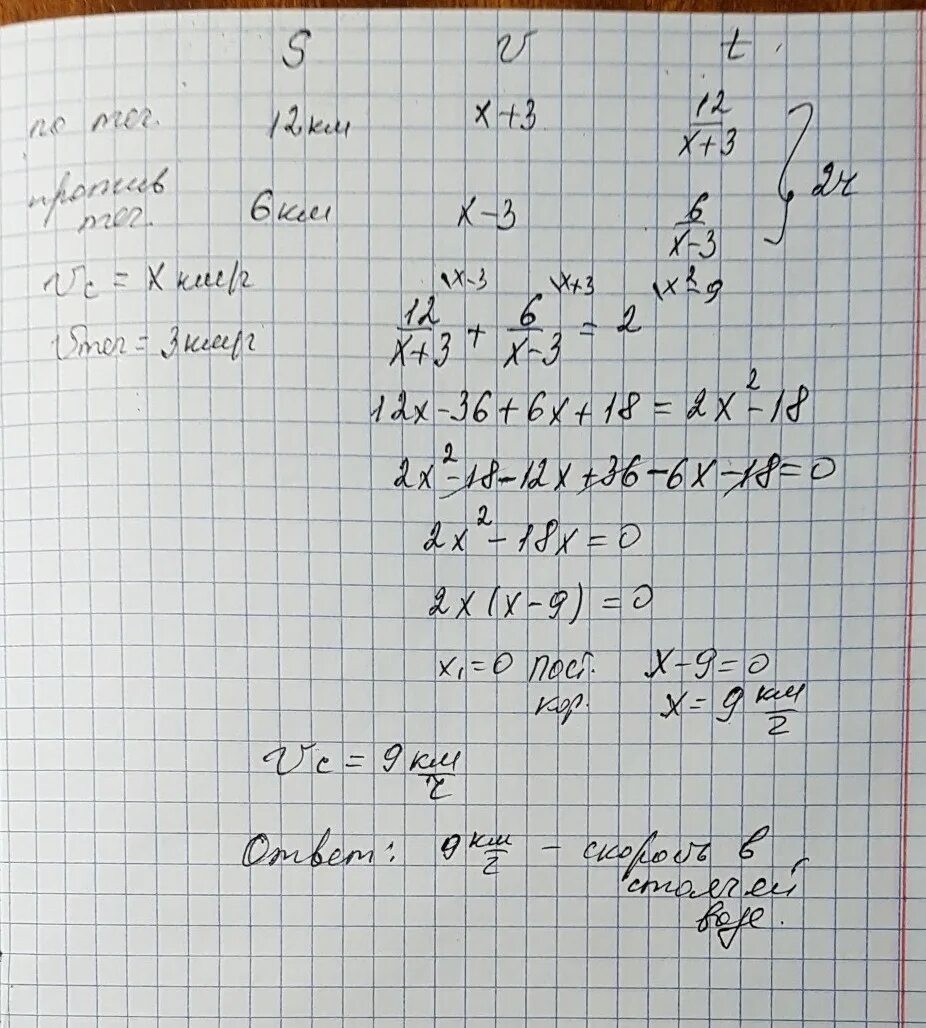 S v t
по теч. 12км x+3 12/(x+3)
против теч. 6км x-3 6/(x-3) } 2ч
Vc = x км/ч
Vтеч = 3км/ч
12/(x+3) \x-3 + 6/(x-3) \x+3 = 2 \x²-9
12x-36+6x+18 = 2x²-18
2x²-18-12x+36-6x-18=0
2x²-18x=0
2x(x-9)=0
x₁=0 пост. кор. x-9=0
x=9 км/ч
Vc = 9 км/ч
Ответ: 9 км/ч - скорость в
стоячей
воде.